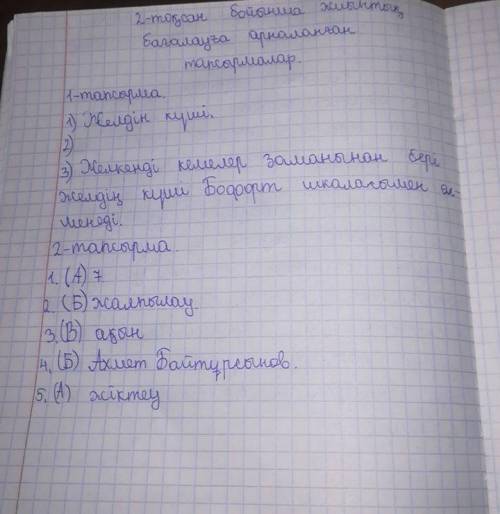 2-тоқсан бойынша жиынтық
бағалауға арналанған
тапсырмалар.
1-тапсырма.
1) Желдін күші.
2)
3) Желкенді кемелер заманынан бері
желдің күши Бофорт шкаласымен өл-
шенеді.
2-тапсырма.
1. (А) 7
2. (Б) жалпылау
3. (В) ақын
4. (Б) Ахмет Байтұрсынов.
5. (А) жіктеу